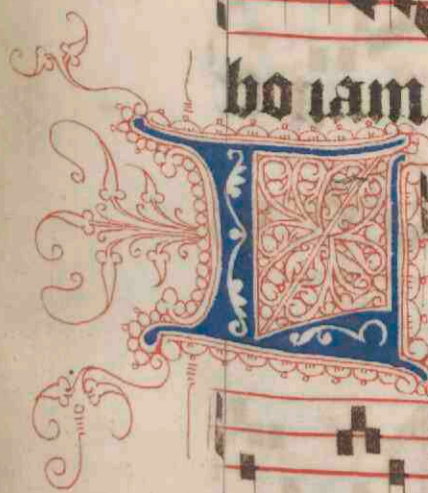 bo iam
L